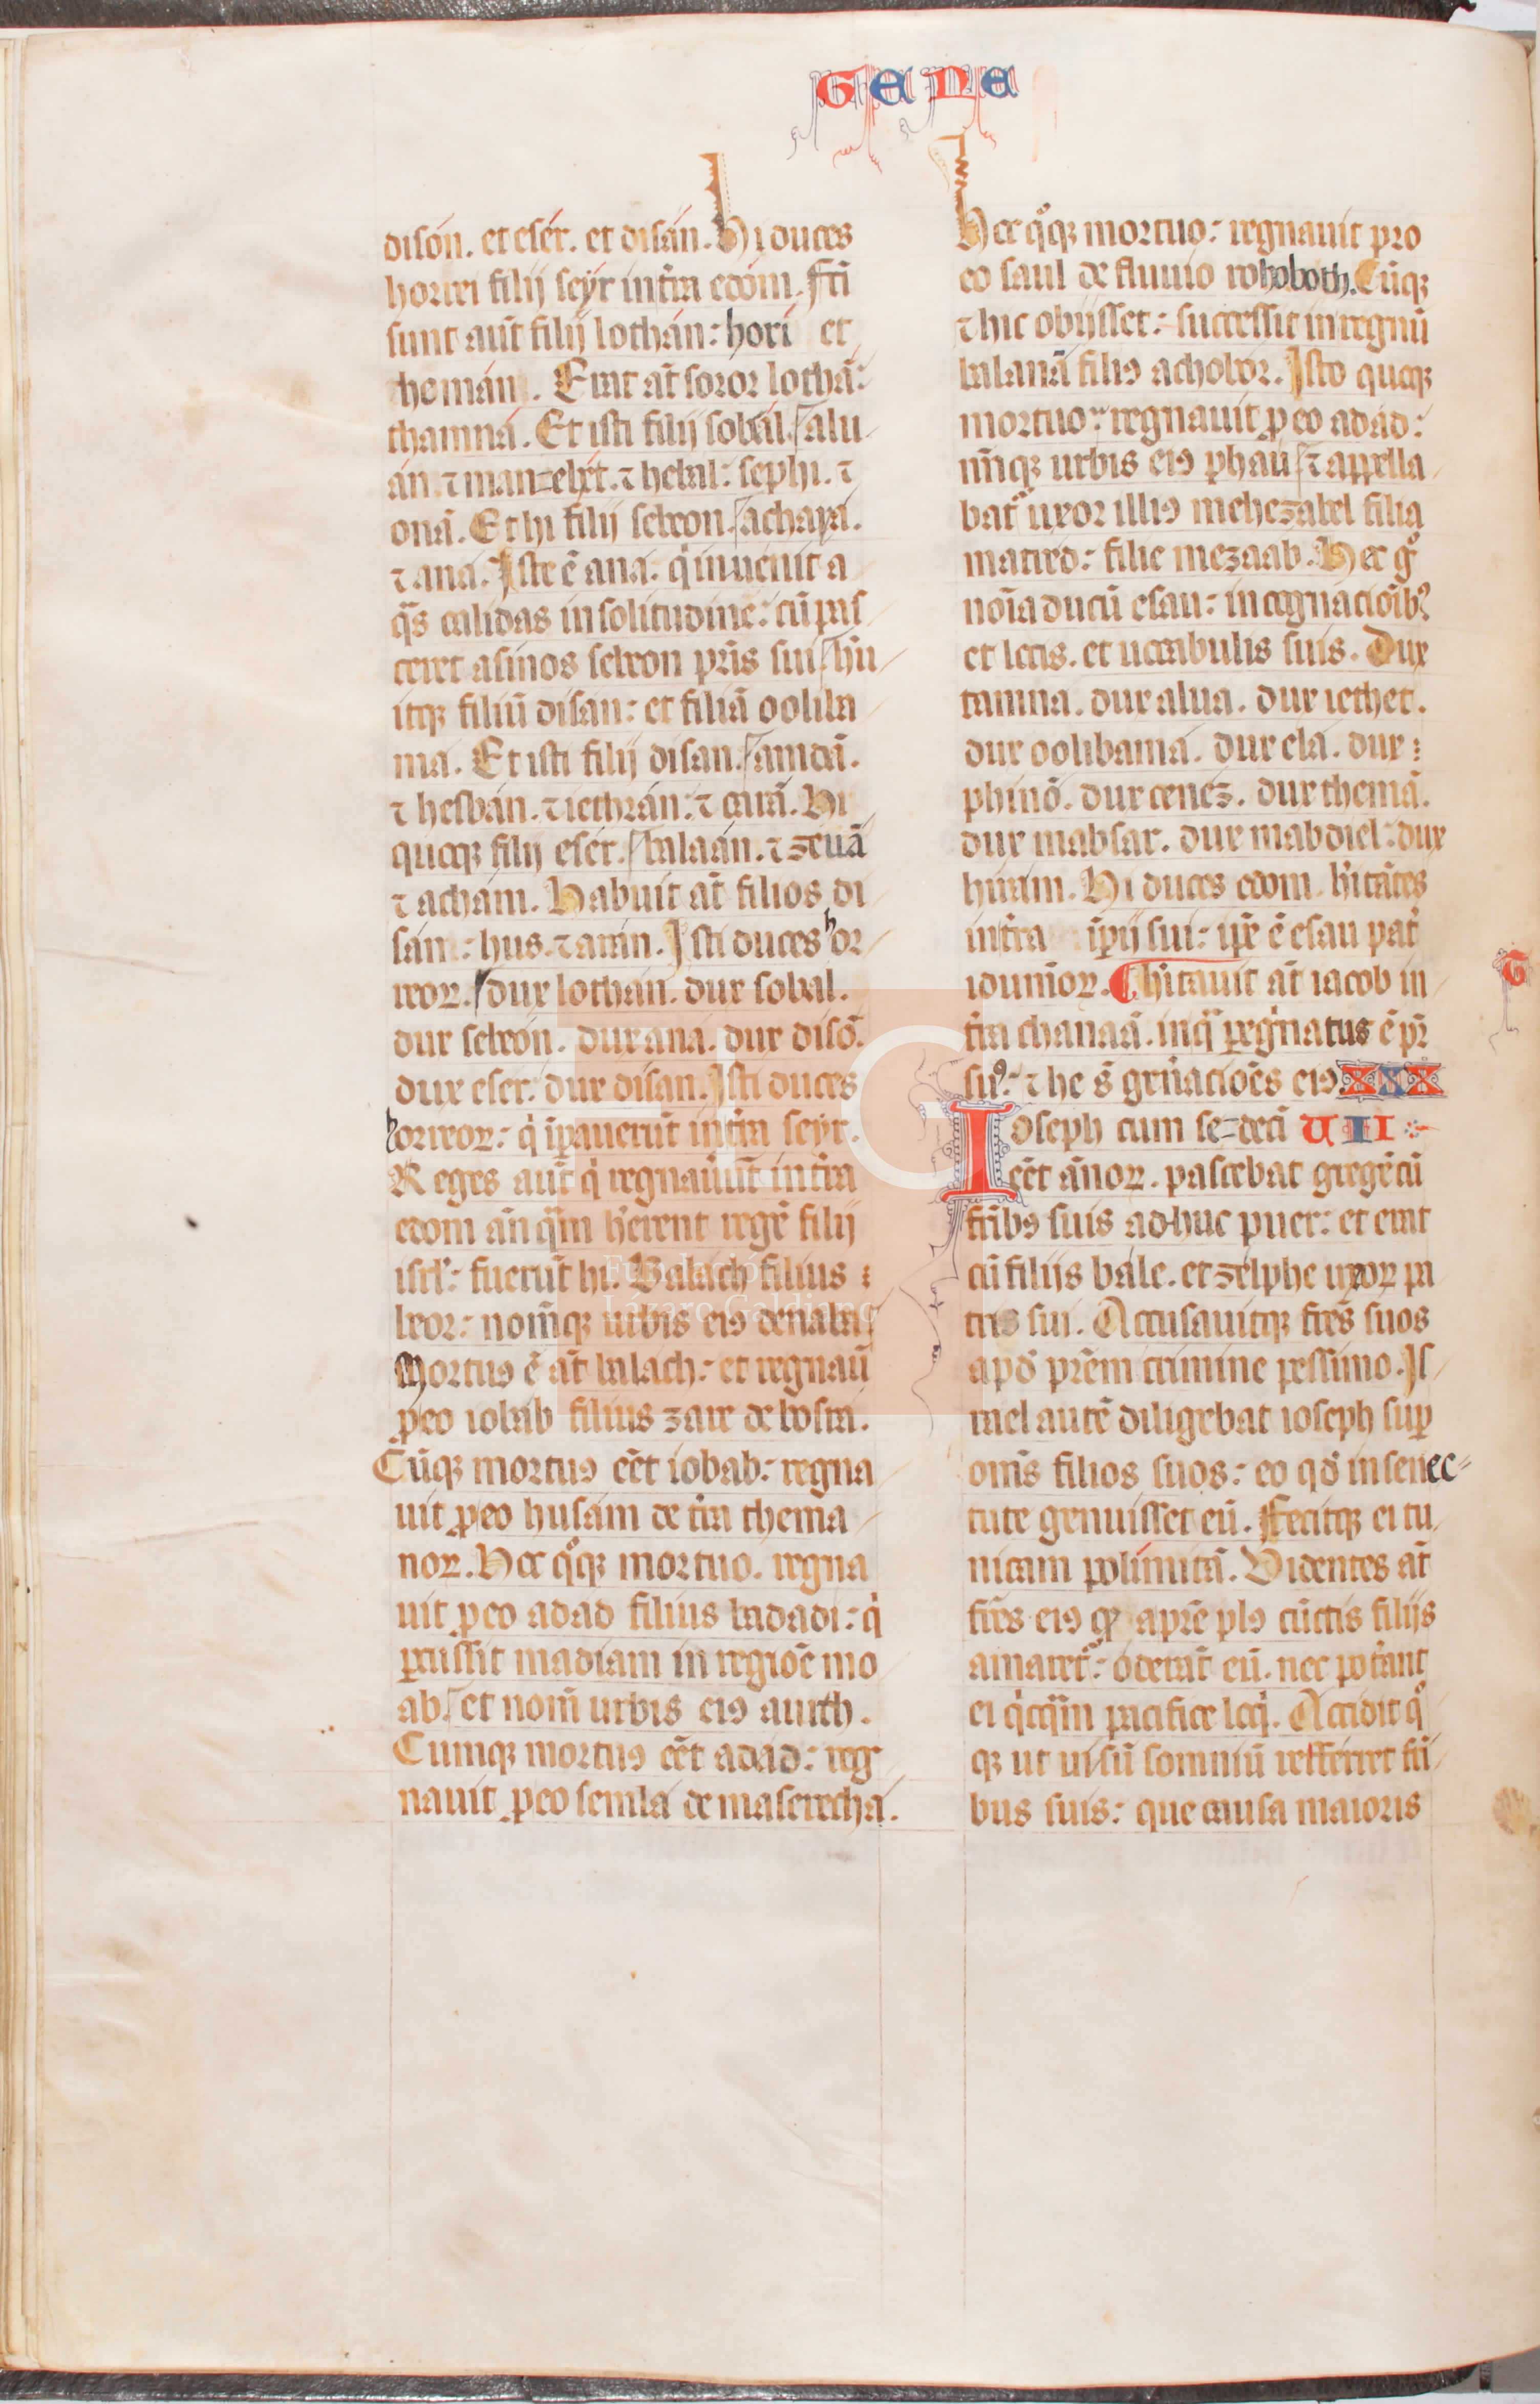 GENE
disón. et esér. et disán. Hi duces
horrei filij seyr in tr̄a edóm. ffcī
sunt aut̄ filij lothán: hori et
hemán. Erat at̄ soror lothā:
thamná. Et isti filij sobál. alu
án. ⁊ manæhet. ⁊ hebal: sephi. ⁊
onā. Et hi filij sebeon. achaya.
⁊ aná. Iste ē ana. q̇ inuenit a
q̄s calidas in solitudine: cū pas
ceret asinos sebeon pr̄is sui. hūi
itꝙ filiū disan: et filiā ooliba
má. Et isti filij disan. amdā.
⁊ hesbán. ⁊ iethrán: ⁊ carā. Hi
quoqꝫ filij esér. balaán. ⁊ zeuā
⁊ achám. Habuit at̄ filios di
sám: hus. ⁊ arán. Isti duces hor
reoꝝ. dux lothán. dux sobal.
dux sebeón. dux ana. dux disō.
dux eser: dux disan. Isti duces
horreoꝝ: q̇ īpauerūt in tr̄a seyr.
Reges aut̄ q̇ regnauūt in tr̄a
edom an̄ q̄m h̄erent regē filij
isrl̄: fuerūt hi. Balách filius
beor: nom̄qꝫ urbis eiꝰ denaba
Mortuꝰ ē at̄ balach: et regnauī
ꝓ eo iobáb filius zare de bosra.
Cūqꝫ mortuꝰ eēt iobab: regna
uit ꝓ eo husám de tr̄a thema
noꝝ. Hoc qͦqꝫ mortuo. regna
uit ꝓ eo adad filius badadi: q̇
ꝑcussit madiam in regiōe mo
ab. et nom̄ urbis eiꝰ auith.
Cumqꝫ mortuꝰ eēt adád: reg
nauit ꝓ eo semla de maserecha.
Hoc qͦqꝫ mortuo: regnauit pro
eo saul de fluuio rohoboth. Cūqꝫ
⁊ hic obijsset: successit in regnū
balanā filiꝰ achobor. Isto quoqꝫ
mortuo: regnauit ꝓ eo adád:
nm̄qꝫ urbis eiꝰ phaú ⁊ appella
bat᷑ uxor illiꝰ mehezabel filia
matred: filie mezaab. Hec gͦ
noīa ducū esau: in cognacioībꝫ
et locis. et uocabulis suis. Dux
tamna. dux alua. dux iethet.
dux oolibama. dux ela. dux
phinō. dux cenez. dux themā.
dux mabsar. dux mabdiel: dux
hiram. Hi duces edom. h̄itātes
in tr̄a īpij sui: ip̄e ē esau pat̄
idumeoꝝ. Hītauit at̄ iacob in
tr̄a chanaā. in q̄ ꝑegͥnatus ē pr̄
suꝰ: ⁊ he s̄ gn̄acioēs eiꝰ XXX
Ioseph cum sedeci VII
eēt ānoꝝ. pascebat gregē cū
fr̄ibꝰ suis adhuc puer: et erat
cū filijs bale. et zelphe uxoꝝ pa
tris sui. Accusauitqꝫ fr̄es suos
apd̄ prēm crimine pessimo. Is
rael autē diligebat ioseph suꝑ
om̄s filios suos: eo qd̄ in senec
tute genuisset eū. Fecitqꝫ ei tu
nicam polimitā. Videntes at̄
fr̄es eiꝰ ꝙ a pr̄e plꝰ cūctis filijs
amaret᷑: oderāt eū. nec pot̄ant
ei q̇cq̄m pacifice loq̇. Accidit qͦ
qꝫ ut uisū somniū referret fr̄i
bus suis: que causa maioris
G
Fundación
Lázaro Galdiano